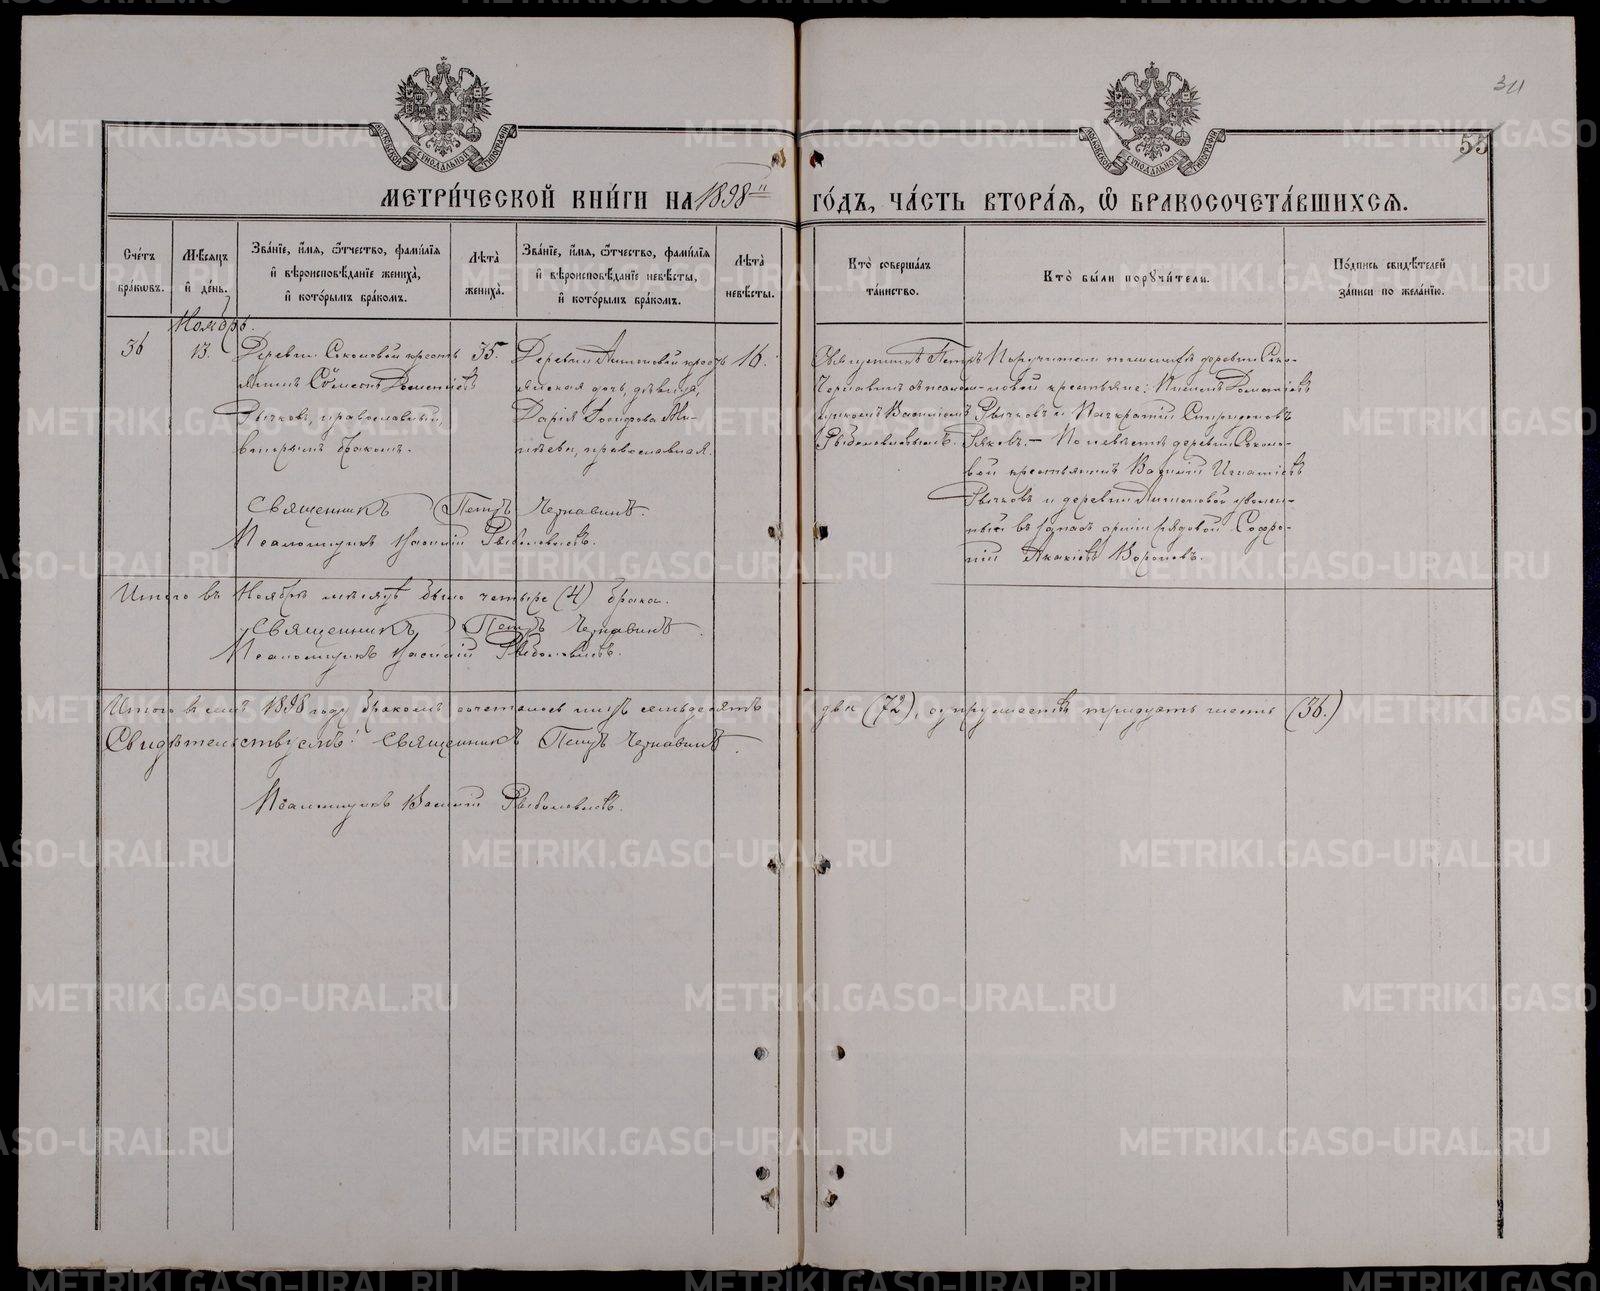 311
55
МОСКОВСКОЙ СѴНОДАЛЬНОЙ ТИПОГРАФІИ
МОСКОВСКОЙ СѴНОДАЛЬНОЙ ТИПОГРАФІИ
МЕТРИ́ЧЕСКОЙ КНИ́ГИ НА 1898й ГО́ДЪ, ЧА́СТЬ ВТОРА́Ѧ, Ѡ҆ БРАКОСОЧЕТА́ВШИХСѦ.
Сче́тъ бра́кѡвъ.
Мѣ́сяцъ и҆ де́нь.
Зва́нїе, и҆́мя, ѻ҆́тчество, фами́лїя и҆ вѣроисповѣ́данїе жениха̀, и҆ кото́рымъ бра́комъ.
Лѣ́та жениха̀.
Зва́нїе, и҆́мя, ѻ҆́тчество, фами́лїя и҆ вѣроисповѣ́данїе невѣ́сты, и҆ кото́рымъ бра́комъ.
Лѣ́та невѣ́сты.
Кто̀ соверша́лъ та́инство.
Кто̀ бы́ли порꙋчи́тели.
По́дпись свидѣ́телей за́писи по жела́нїю.
Ноябрь.
36
13.
Деревни Соколовой кресть-
янинъ Симеонъ Доментіевъ
Рычковъ, православный,
вторымъ бракомъ.
35.
Деревни Антоновой кресть-
янская дочь, дѣвица,
Дарія Іосифова Ми-
нѣева, православная.
16.
Священникъ Петръ
Чернавинъ съ псалом-
щикомъ Василіемъ
Рыболовлевымъ.
Поручители по женихѣ деревни Соко-
ловой крестьяне: Пименъ Доментіевъ
Рычковъ и Панкратій Спиридоновъ
Ряковъ. — По невѣстѣ деревни Соколо-
вой крестьянинъ Василій Игнатіевъ
Рычковъ и деревни Антоновой уволен-
ный въ запасъ арміи рядовой Софро-
ній Акакіевъ Вороновъ.
Священникъ Петръ Чернавинъ.
Псаломщикъ Василій Рыболовлевъ.
Итого въ Ноябрѣ мѣсяцѣ было четыре (4) брака.
Священникъ Петръ Чернавинъ.
Псаломщикъ Василій Рыболовлевъ.
Итого въ семъ 1898 году бракомъ сочеталось лицъ семьдесятъ два (72), супружествъ тридцать шесть (36.)
Свидѣтельствуемъ: Священникъ Петръ Чернавинъ.
Псаломщикъ Василій Рыболовлевъ.
METRIKI.GASO-URAL.RU